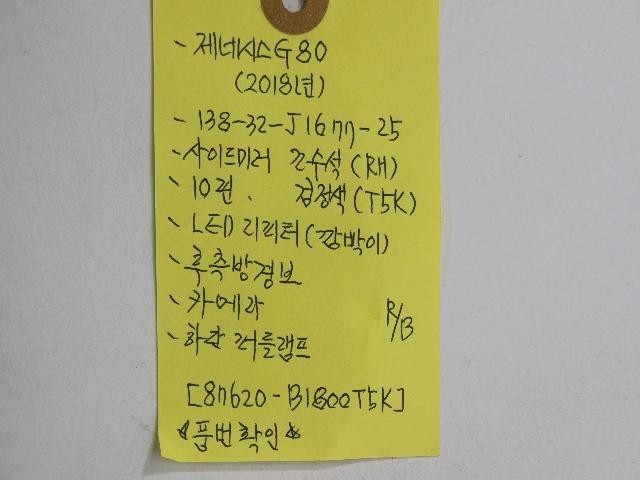 - 제네시스G80
(2018년)
- 138-32-J1677-25
- 사이드미러 조수석(RH)
- 10핀. 검정색(T5K)
- LED리피터(깜박이)
- 후측방경보
- 카메라
R/B
- 하단 퍼들램프
[87620-B1800T5K]
☆품번확인☆